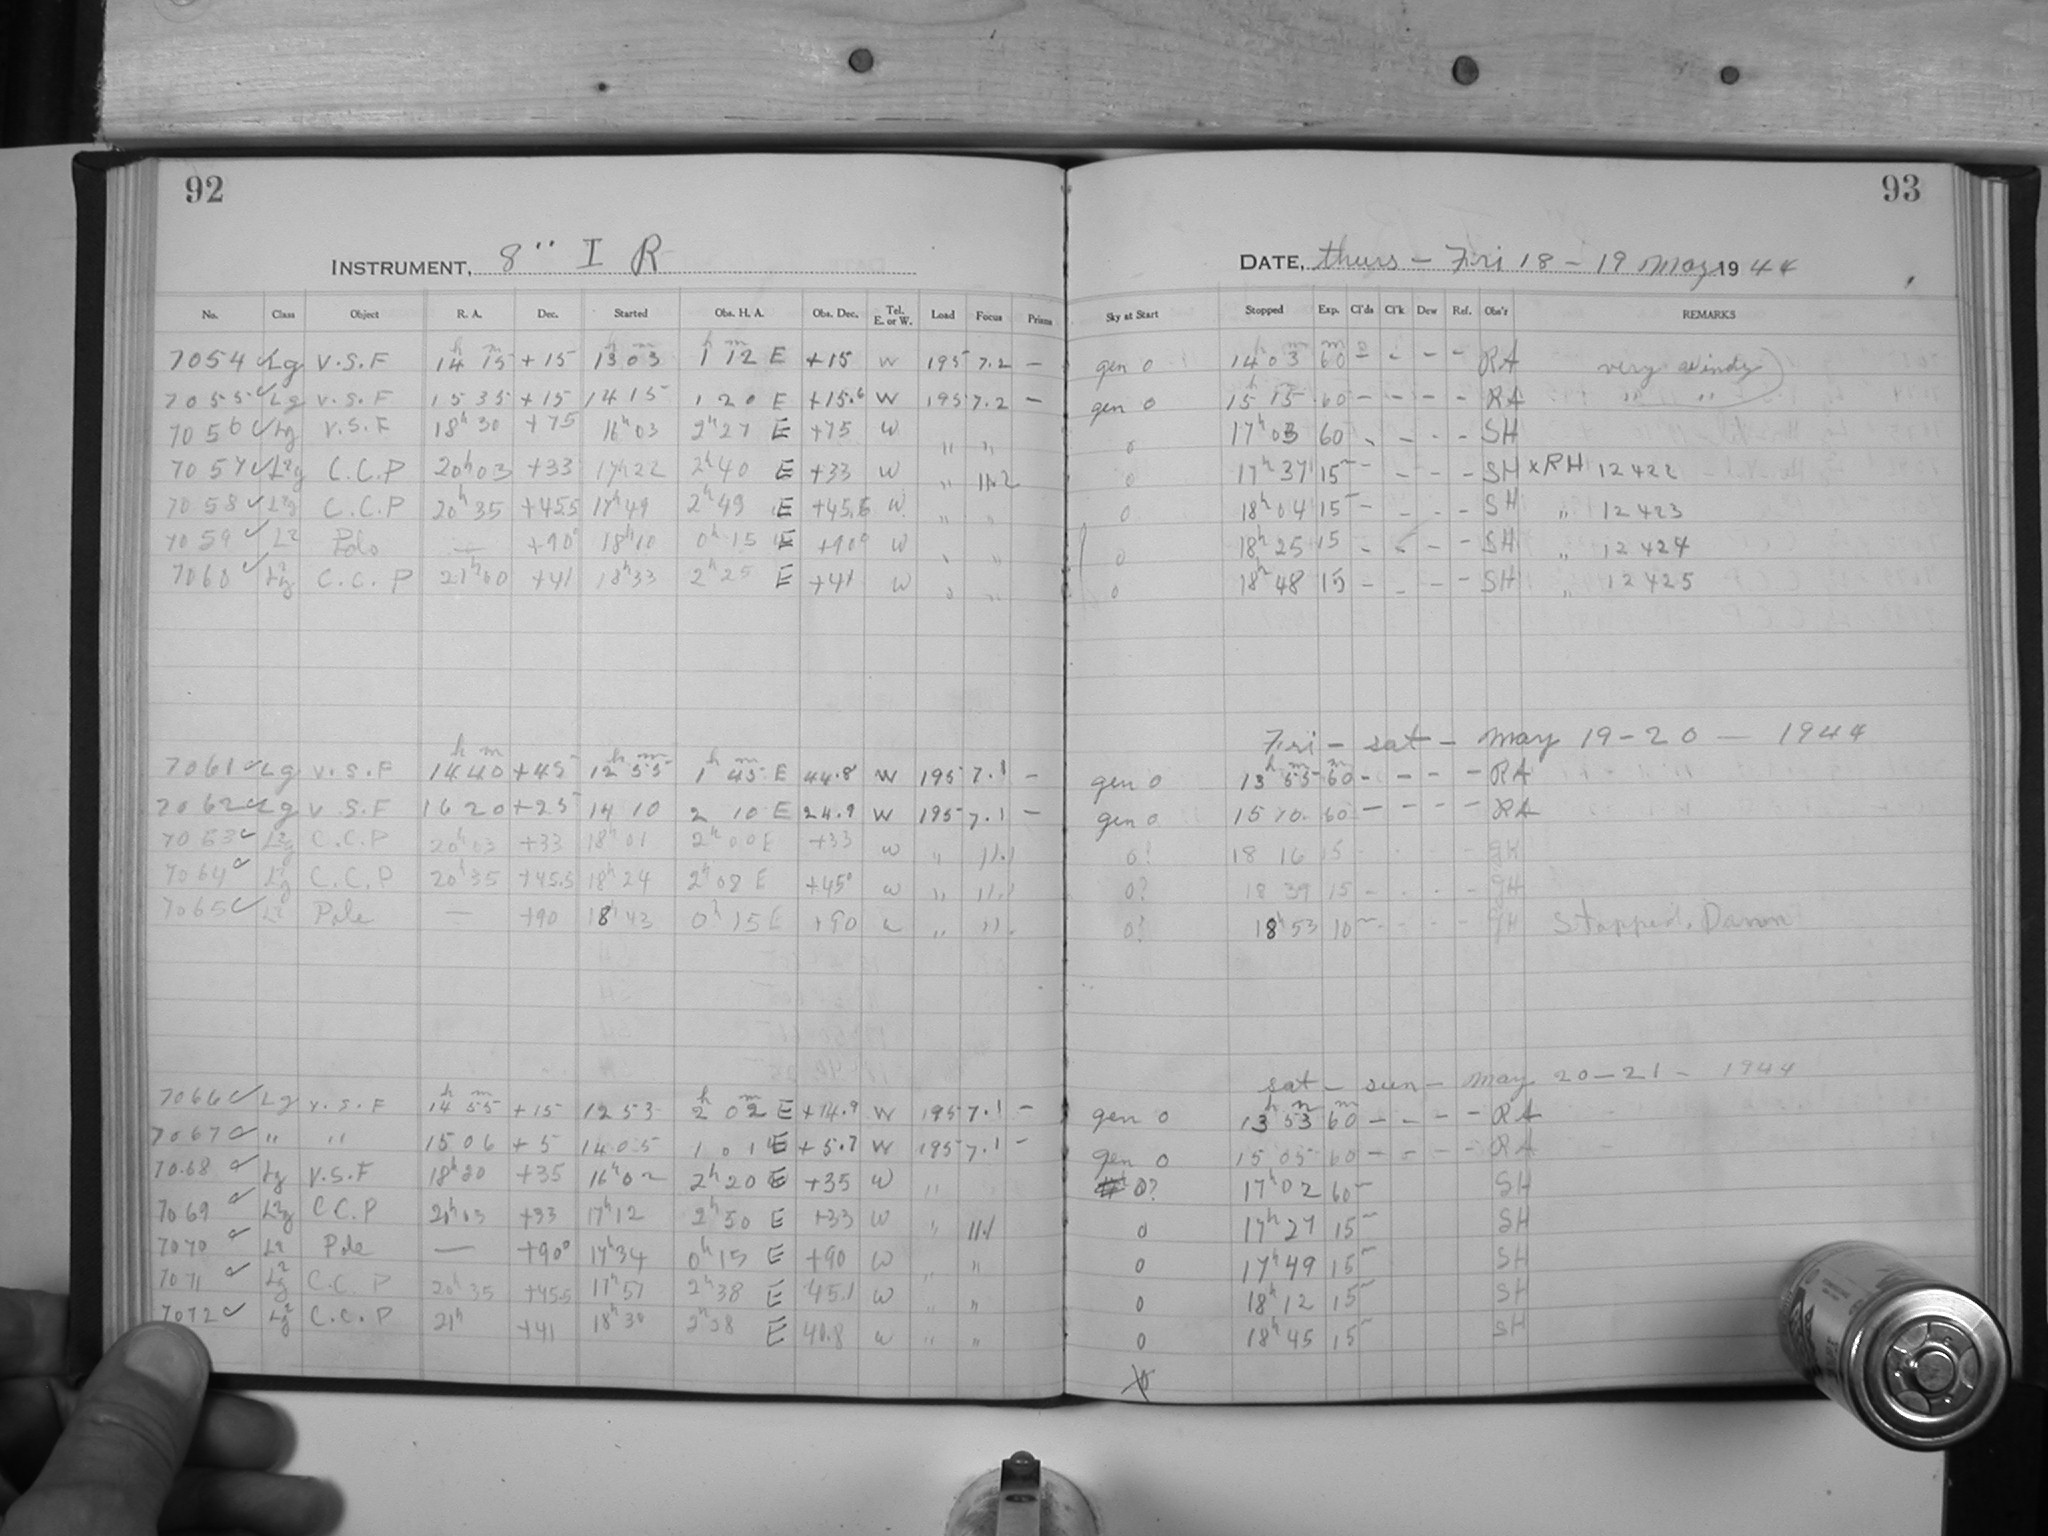 92
INSTRUMENT, 8" I R
No. Class Object R. A. Dec. Started Obs. H. A. Obs. Dec. Tel. E. or W. Load Focus Prisms
7054 ✓ Lg V.S.F 14h 15m +15 13h 03m 1h 12m E +15 W 195 7.2 –
7055 ✓ Lg V.S.F 15 35 +15 14 15 1 20 E +15.6 W 195 7.2 –
7056 ✓ Lg V.S.F 18h 30 +75 16h 03 2h 27 E +75 W " "
7057 ✓ L2g C.C.P 20h 03 +33 17h 22 2h 40 E +33 W " 11.2
7058 ✓ L2g C.C.P 20h 35 +45.5 17h 49 2h 49 E +45.5 W " "
7059 ✓ L2 Pole — +90° 18h 10 0h 15 E +90° W " "
7060 ✓ L2g C.C.P 21h 00 +41 18h 33 2h 25 E +41 W " "
7061 ✓ Lg V.S.F 14h 40m +45 12h 55m 1h 45 E 44.8 W 195 7.1 –
7062 ✓ Lg V.S.F 16 20 +25 14 10 2 10 E 24.9 W 195 7.1 –
7063 ✓ L2g C.C.P 20h 03 +33 18h 01 2h 00 E +33 W " 11.1
7064 ✓ L2g C.C.P 20h 35 +45.5 18h 24 2h 08 E +45° W " 11.1
7065 ✓ L2 Pole — +90 18h 43 0h 15 E +90 W " 11.
7066 ✓ Lg V.S.F 14h 55m +15 12 53 2h 02m E +14.9 W 195 7.1 –
7067 ✓ " " 15 06 +5 14 05 1 01 E +5.7 W 195 7.1 –
7068 ✓ Lg V.S.F 18h 20 +35 16h 02 2h 20 E +35 W "
7069 ✓ L2g C.C.P 20h 03 +33 17h 12 2h 50 E +33 W " 11.1
7070 ✓ L2 Pole — +90° 17h 34 0h 15 E +90 W "
7071 ✓ L2g C.C.P 20h 35 +45.5 17h 57 2h 38 E 45.1 W " "
7072 ✓ L2g C.C.P 21h +41 18h 30 E 40.8 W " "
93
DATE, Thurs – Fri 18 – 19 May 1944
Sky at Start Stopped Exp. Cl'ds Cl'k Dew Ref. Obs'r REMARKS
gen 0 14h 03m 60m – – – – RA very windy
gen 0 15h 15m 60 – – – – RA " "
0 17h 03 60 – – – – SH
0 17h 37 15 – – – – SH x RH 12422
0 18h 04 15 – – – – SH " 12423
0 18h 25 15 – – – – SH " 12424
0 18h 48 15 – – – – SH " 12425
Fri – Sat – May 19–20 — 1944
gen 0 13h 55m 60m – – – – RA
gen 0 15 10 60 – – – – RA
0? 18 16 15 – – – – GH
0? 18 39 15 – – – – GH
0? 18h 53 10 – – – – GH Stopped, Dawn
Sat – Sun – May 20–21 – 1944
gen 0 13h 53m 60m – – – – RA
gen 0 15 05 60 – – – – RA
0? 17h 02 60 SH
0 17h 27 15 SH
0 17h 49 15 SH
0 18h 12 15 SH
0 18h 45 15 SH